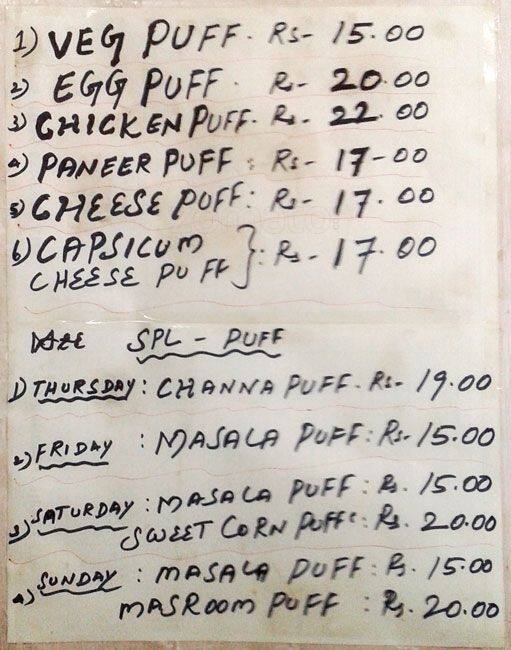 1) VEG PUFF. Rs- 15.00
2) EGG PUFF. Rs- 20.00
3) CHICKEN PUFF. Rs- 22.00
4) PANEER PUFF : Rs- 17-00
5) CHEESE PUFF: Rs- 17.00
6) CAPSICUM
CHEESE PUFF } : Rs- 17.00
SPL - PUFF
1) THURSDAY : CHANNA PUFF. Rs- 19.00
2) FRIDAY : MASALA PUFF: Rs. 15.00
3) SATURDAY : MASALA PUFF : Rs. 15.00
SWEET CORN PUFF: Rs. 20.00
4) SUNDAY : MASALA PUFF : Rs. 15.00
MASROOM PUFF : Rs. 20.00